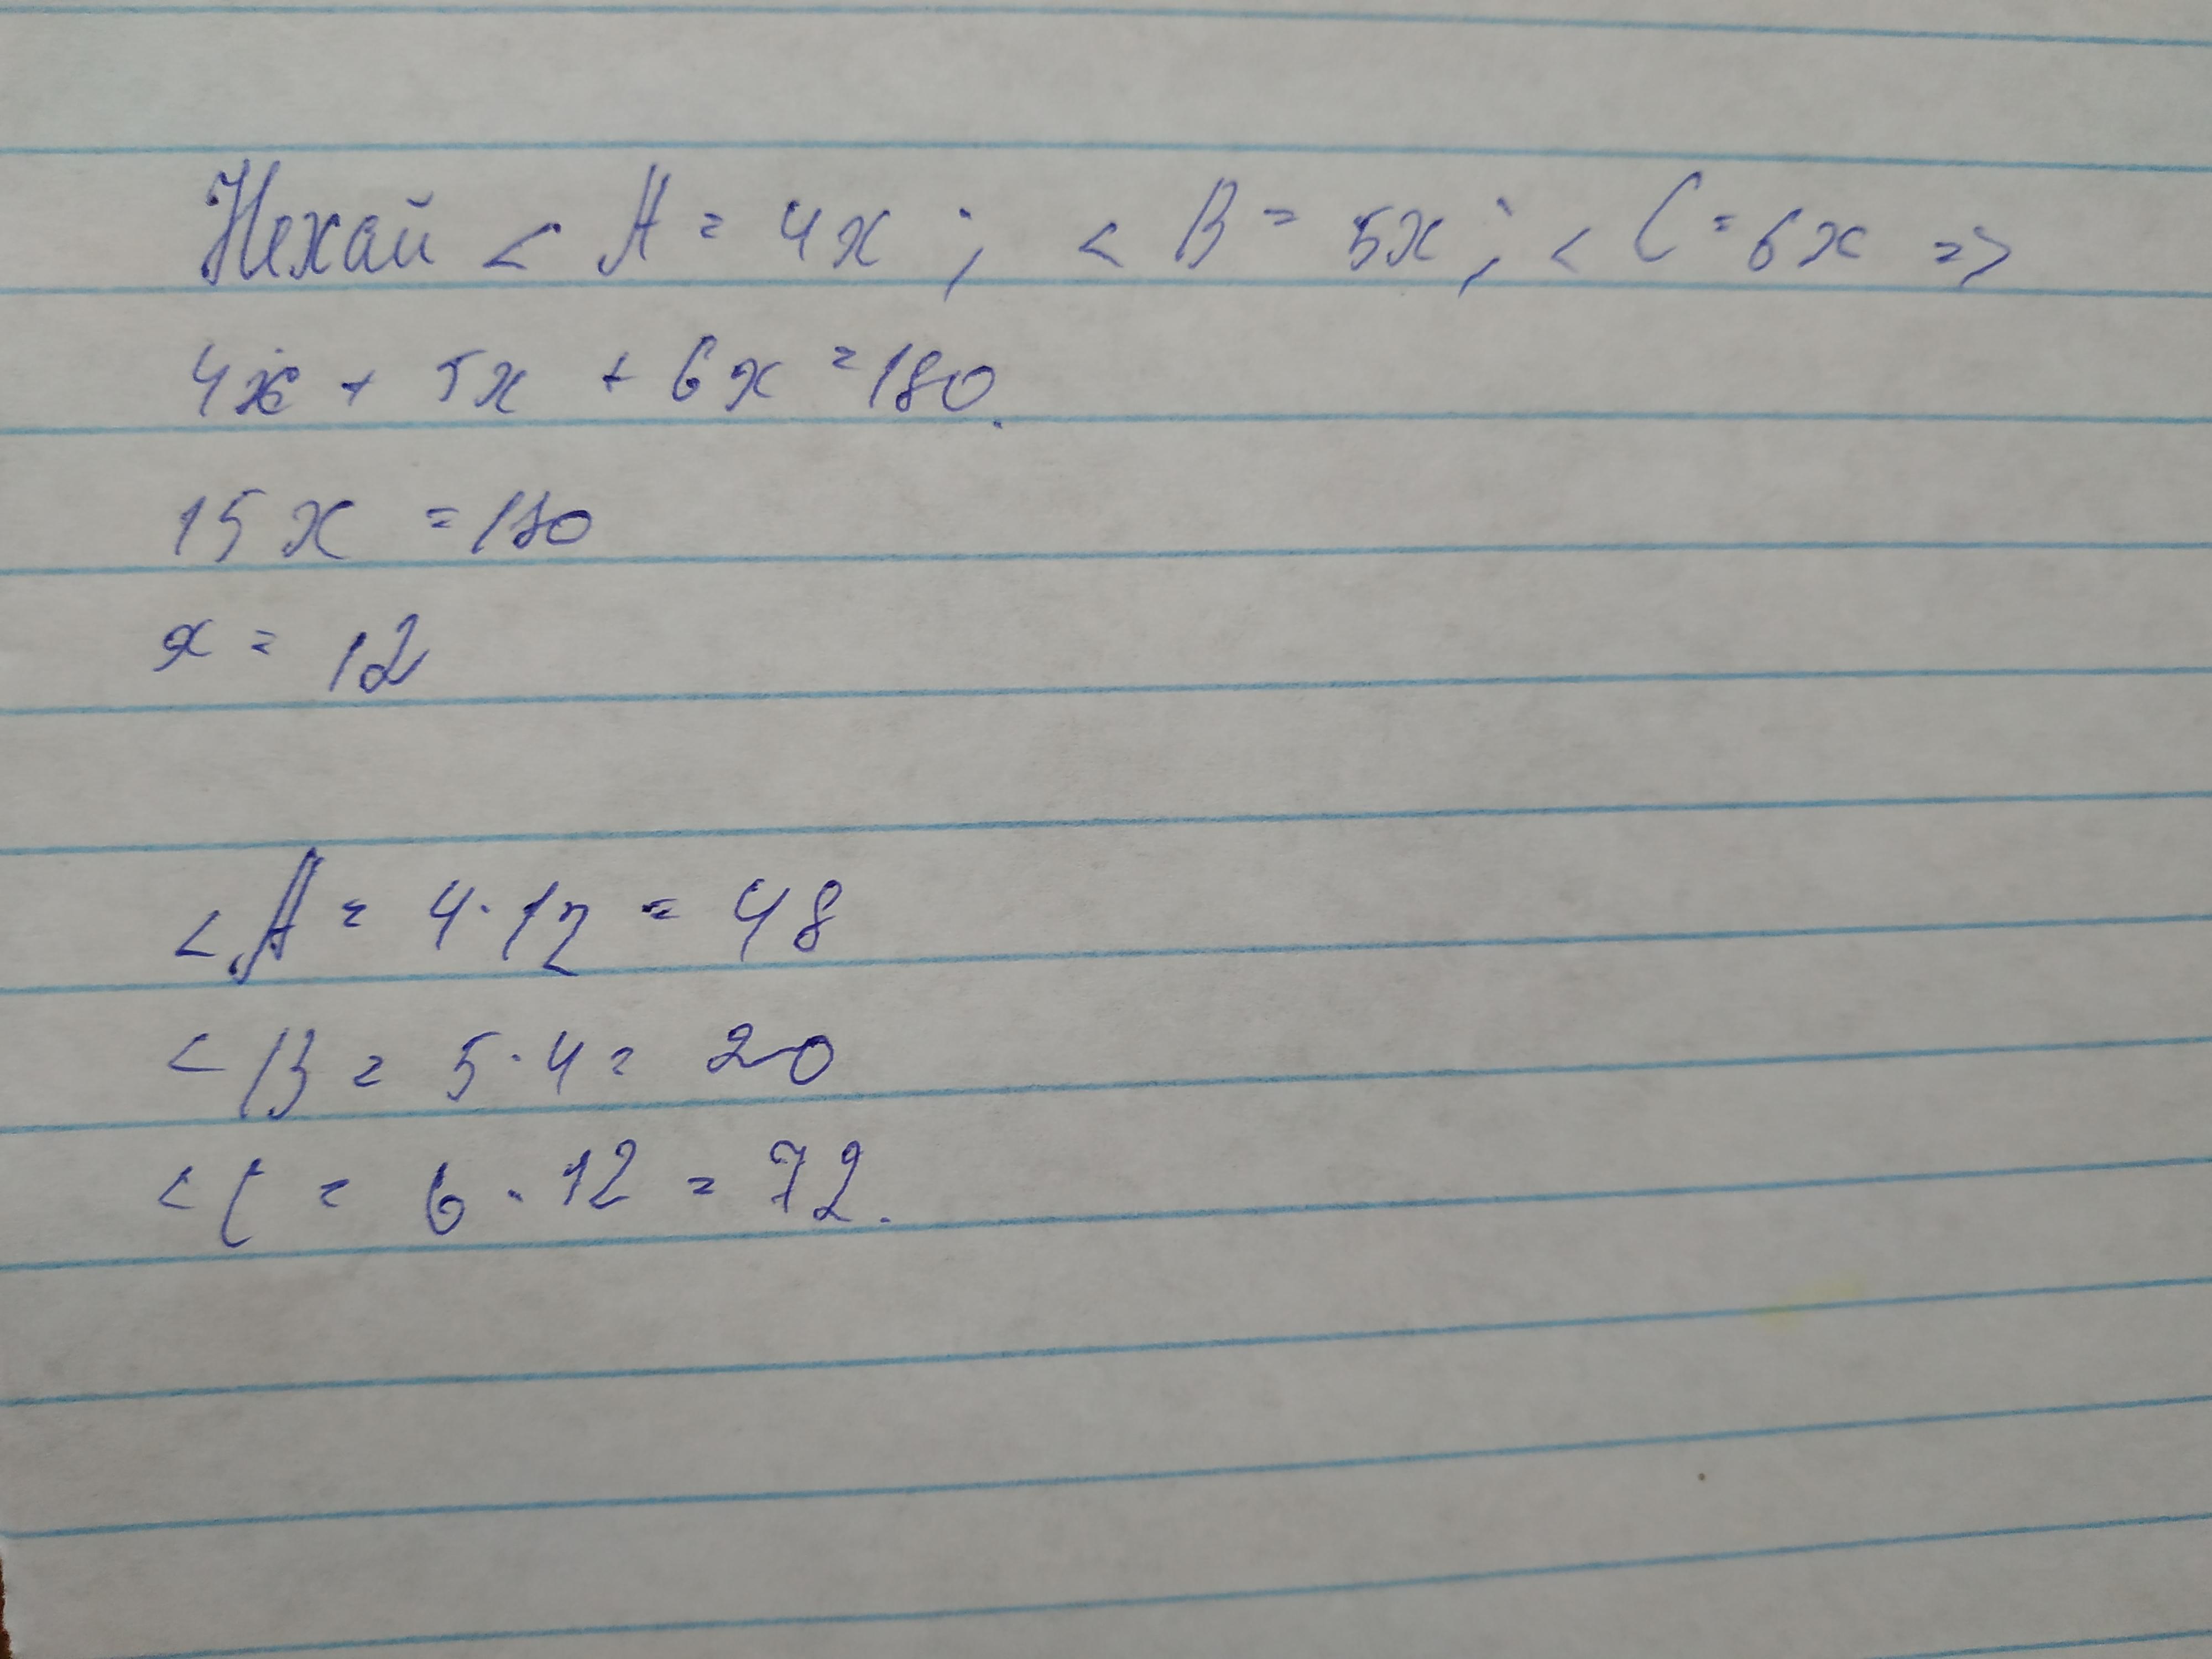 Нехай < A = 4x ; < B = 5x ; < C = 6x =>
4x + 5x + 6x = 180.
15x = 180
x = 12
< A = 4 · 12 = 48
< B = 5 · 4 = 20
< C = 6 · 12 = 72.